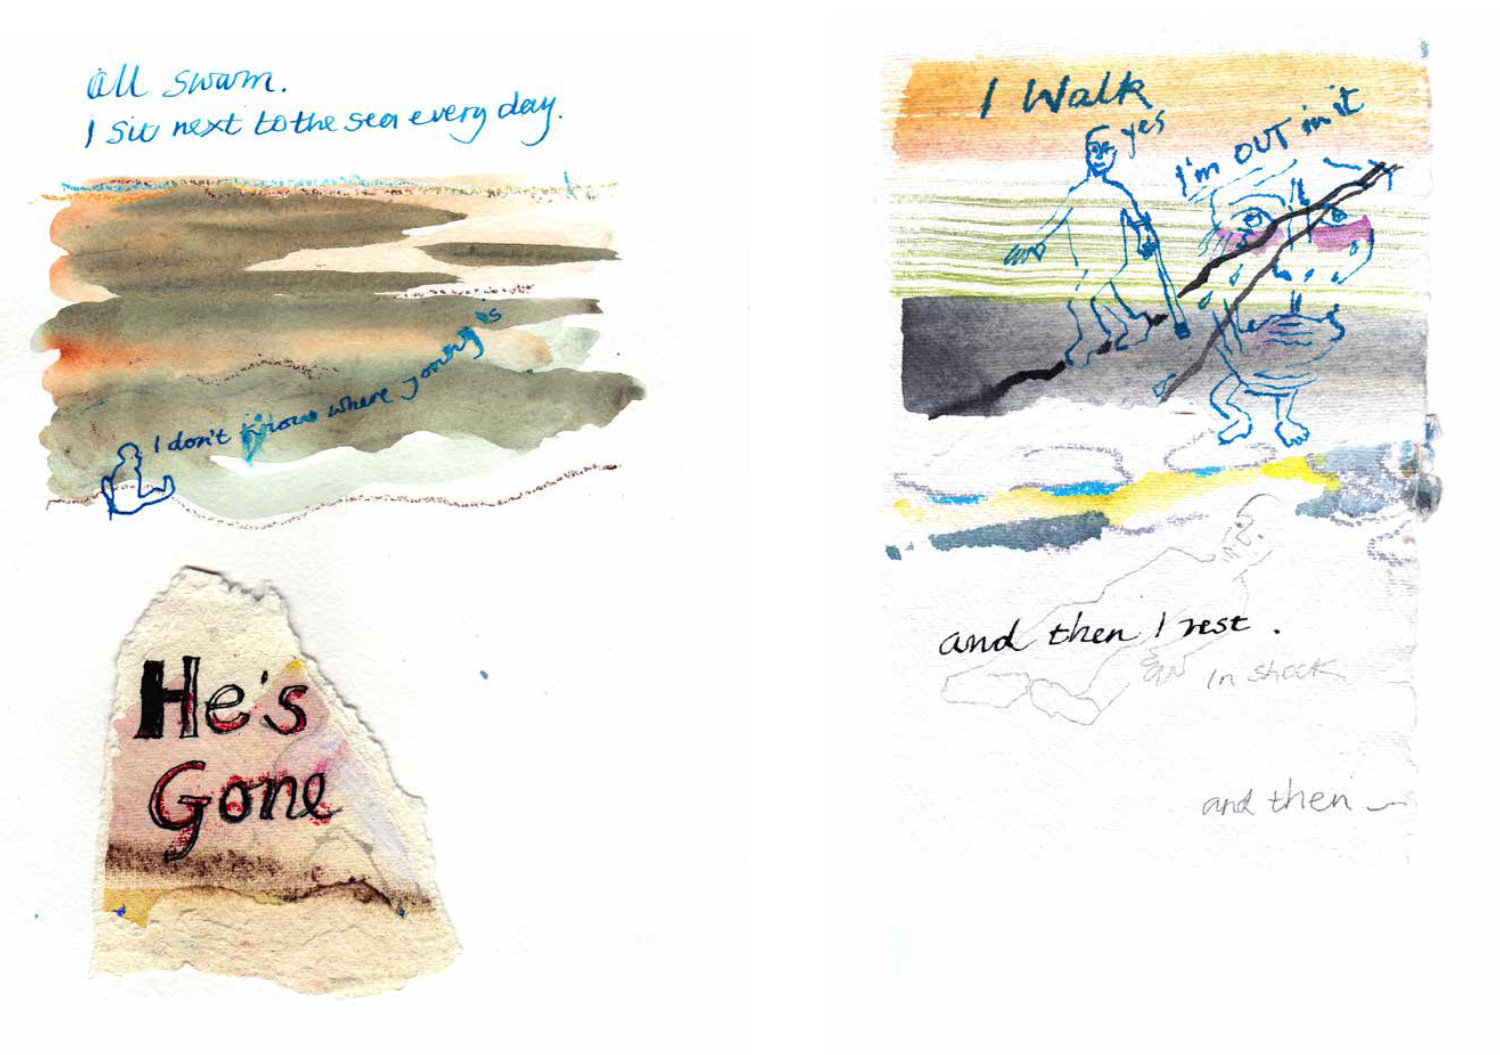 all swam.
I sit next to the sea every day.
I don't know where young is
He's
Gone
I Walk
yes
I'm OUT in it
and then I rest.
In shock
and then